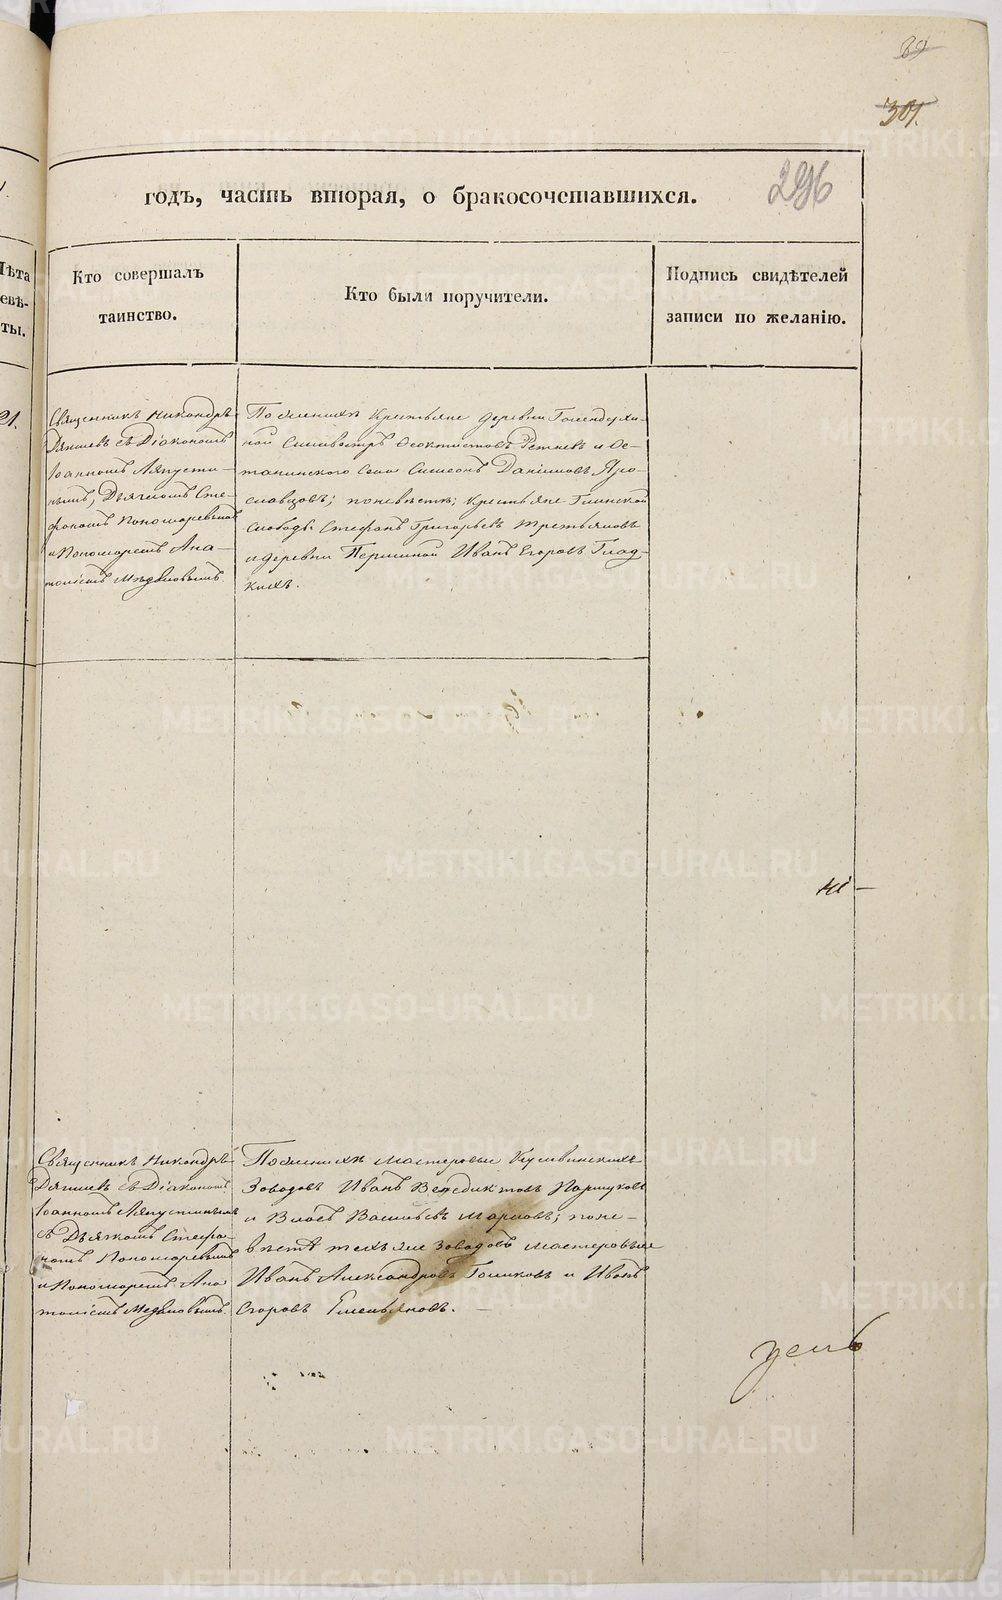 89
301.
296
годъ, часть вторая, о бракосочетавшихся.
Лѣта
евѣ-
ты.
Кто совершалъ
таинство.
Кто были поручители.
Подпись свидѣтелей
записи по желанію.
21.
Священникъ Никандръ
съ Діакономъ
Іоанномъ Ляпусти-
нымъ, Дьячкомъ Сте-
фаномъ Пономаревымъ
и Пономаремъ Ана-
толіемъ
По женихѣ Крестьяне деревни Голендухи-
ной Сильвестръ Феоктистовъ Ретневъ и Ос-
танинского Села Симеонъ Даніиловъ Яро-
славцовъ; поневѣстѣ; Крестьяне Глинской
Слободы Стефанъ Григорьевъ Третьяковъ
и деревни Першиной Иванъ Егоровъ Глад-
кихъ.
Священникъ Никандръ
съ Діакономъ
Іоанномъ Ляпустинымъ
съ Дьячкомъ Стефа-
номъ Пономаревымъ
и Пономаремъ Ана
толіемъ
По женихѣ мастеровые Кушвинскихъ
Заводовъ Иванъ Венедиктовъ Паршуковъ
и Власъ Васильевъ Марловъ; поне-
вѣстѣ техъ же заводовъ мастеровые
Иванъ Александровъ Голиковъ и Иванъ
Егоровъ Емельяновъ.